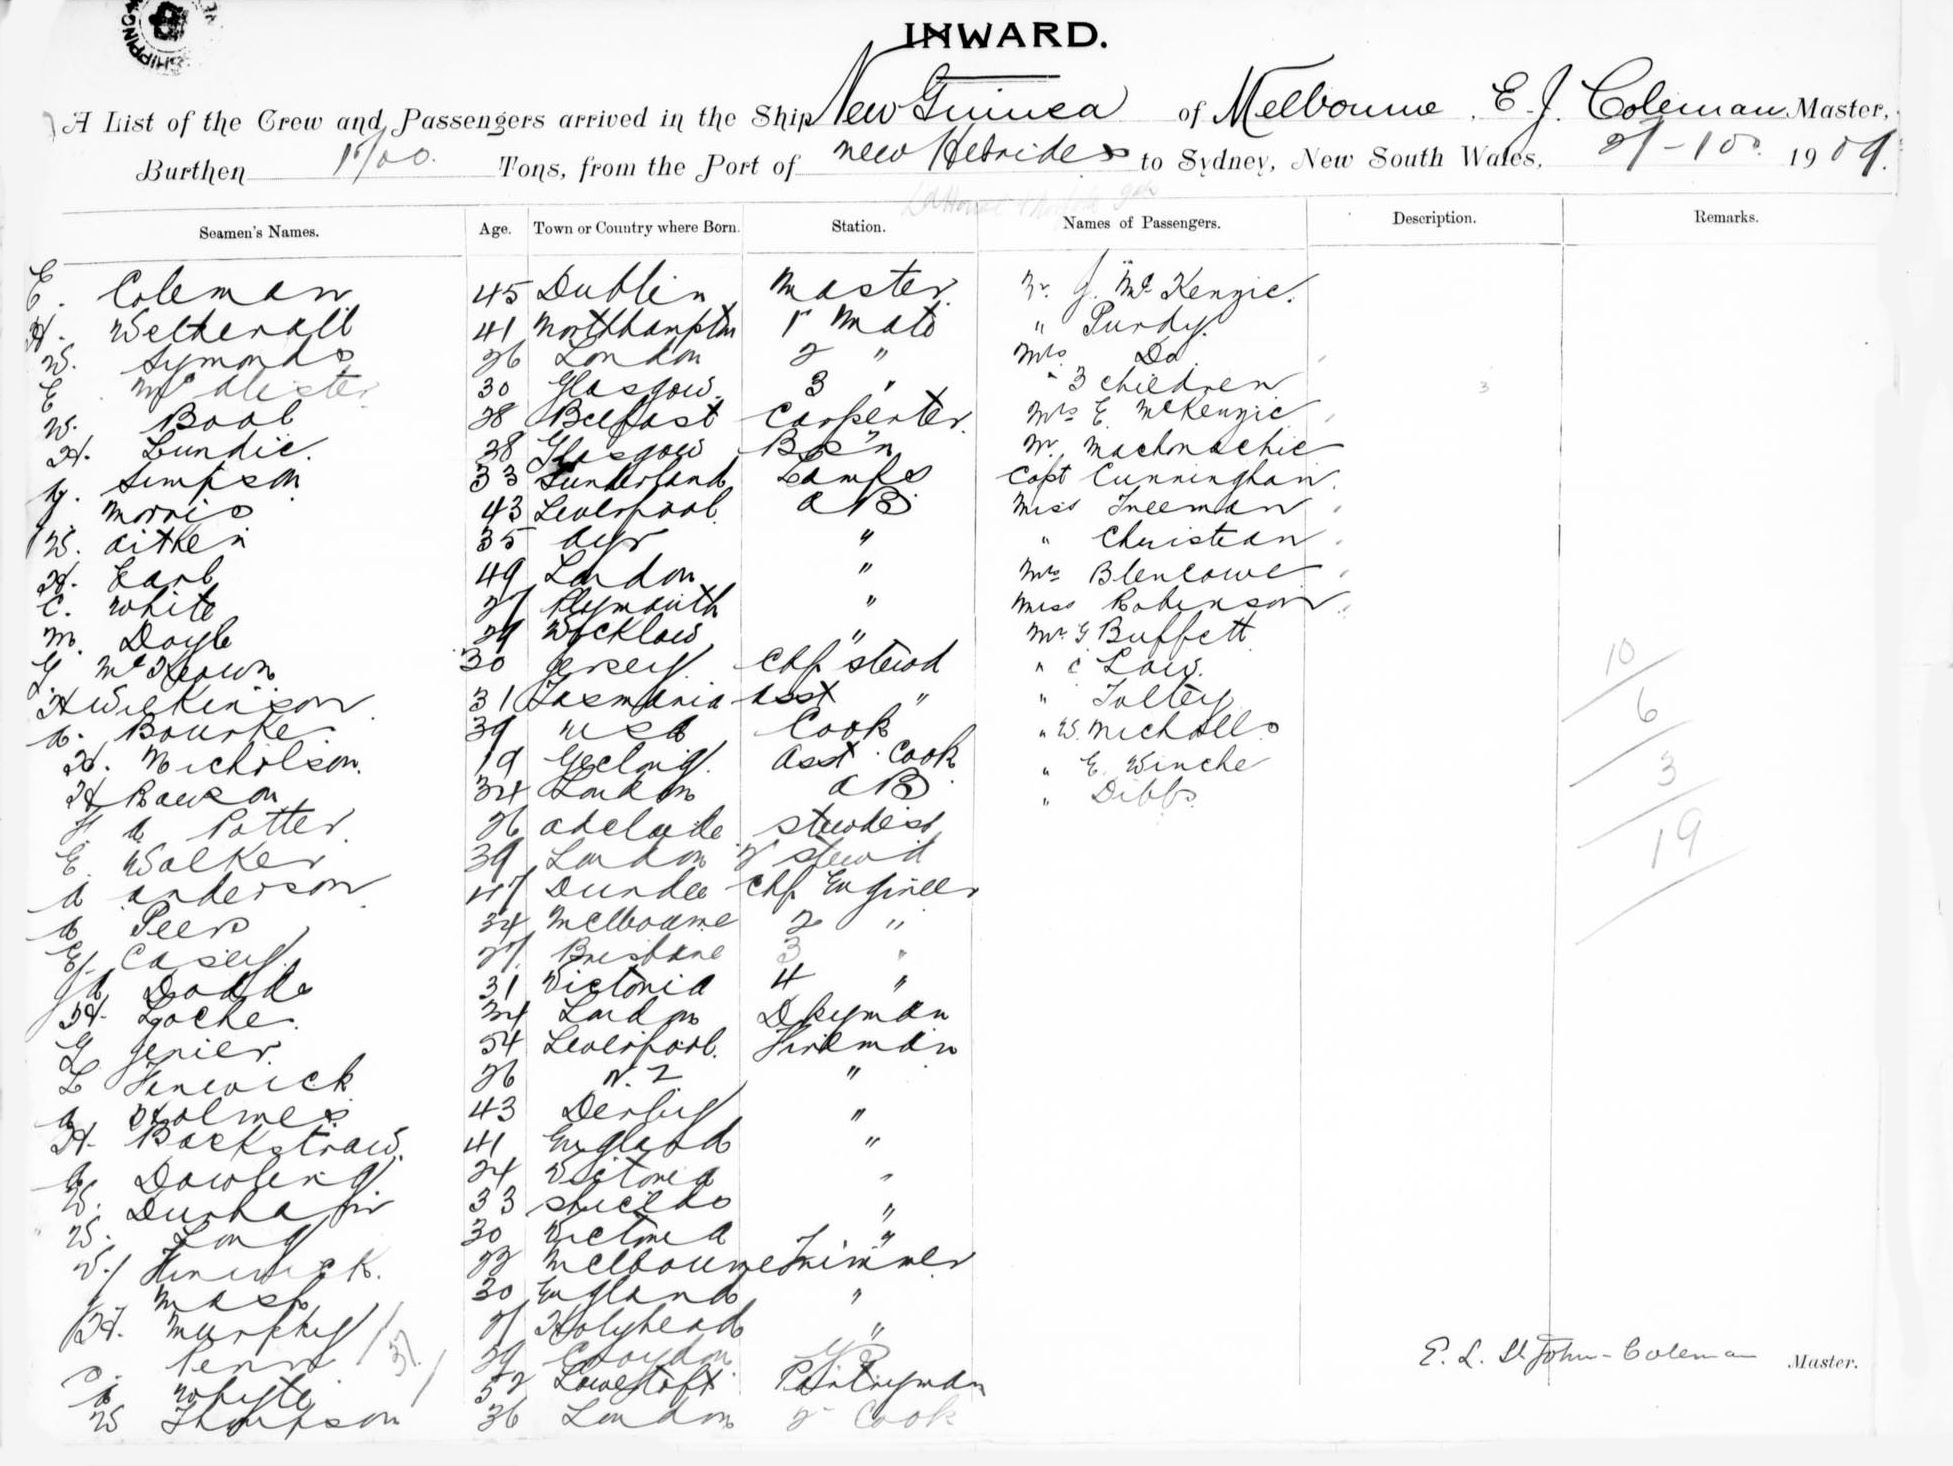 SHIPPING
INWARD.
A List of the Crew and Passengers arrived in the Ship New Guinea of Melbourne, E. J. Coleman Master,
Burthen Tons, from the Port of New Hebrides to Sydney, New South Wales, 27-10 1909.
Seamen's Names. Age. Town or Country where Born. Station. Names of Passengers. Description. Remarks.
E. Coleman 45 Dublin Master Mr. J. McKenzie.
H. Wetherall 41 Northampton 1r Mate " Purdy.
W. Symonds 26 London 2 " Mrs Do
E McAlister 30 Glasgow. 3 " " 3 children 3
W. Boal 28 Belfast Carpenter. Mrs E. McKenzie
H. Lundie. 38 Glasgow Bos'n Mr.
Simpson 33 Sunderland Lamps Capt Cunningham.
Morris 43 Liverpool AB Miss Freeman
W. Aitken 35 Ayr " " Christian
H. Earl 49 London " Mrs Blencowe
C. White 27 Plymouth " Miss Robinson
M. Doyle 29 Wicklow " Mr G Buffett
G McKeown 30 Jersey Chf Stewd " C Law.
H Wilkinson 31 Tasmania Asst " "
A. Bourke 39 USA Cook " W. Nicholls
H. Nicholson. 19 Geelong. Asst. Cook " E. Winche
H Rawson 34 London AB. " Dibbs.
F A Potter. 26 Adelaide Stewdess
E. Walker 39 London 2 Stewd
A Anderson 47 Dundee Chf Engineer
A Peers 34 Melbourne 2 "
E. Casey. 27 Brisbane 3 "
A Dodds 31 Victoria 4 "
H. Locke. 34 London Dkyman
G Genier. 54 Liverpool. Fireman
L Fenwick 26 N.Z "
A Holmes 43 Derby "
H. Backstraw. 41 England "
A Dowling 24 Victoria "
W. Durha 33 Shields "
W. Long 30 Victoria "
W. Fenwick. 22 Melbourne Trimmer
Mash 30 England "
H. Murphy 27 Holyhead "
Penn 29 Croydon
A Whyte 52 Lowestoft Pantryman
W Thompson 36 London 2 Cook
10
6
3
19
37
E. L. St John-Coleman Master.